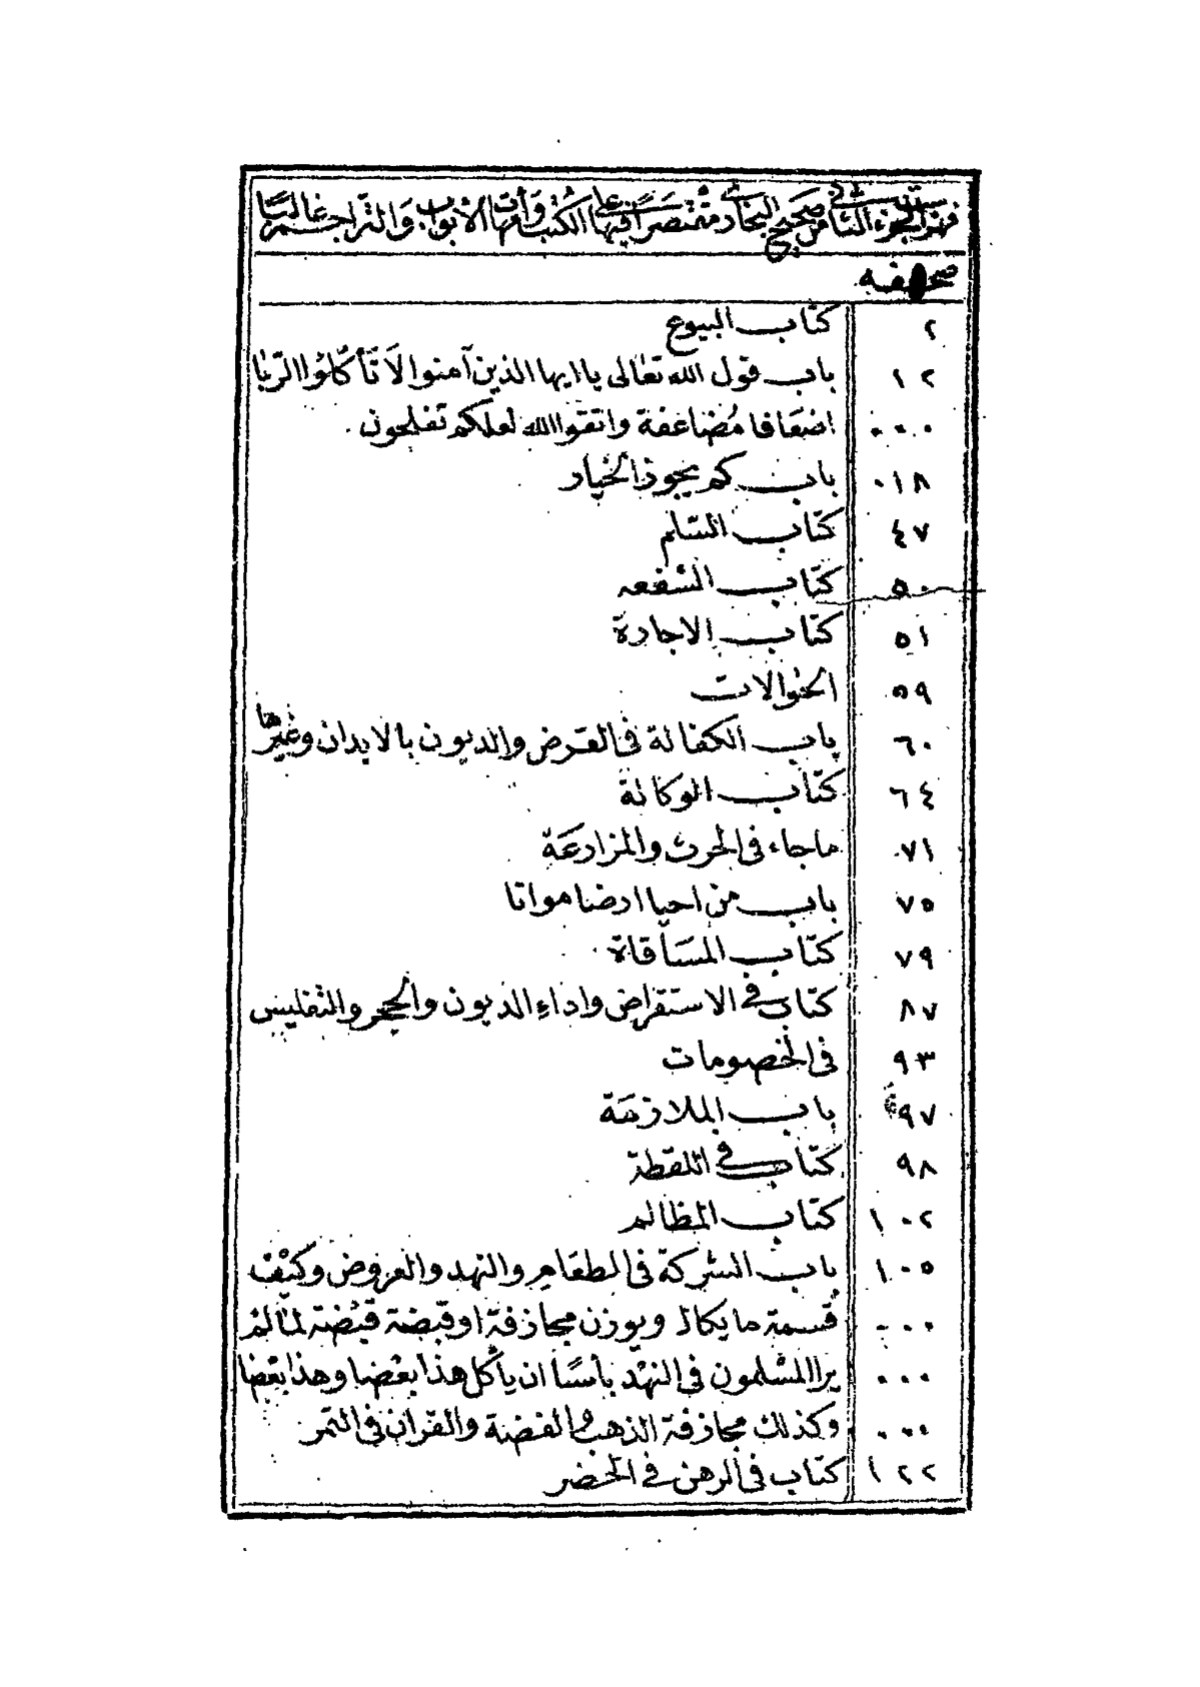 فهرست الجزء الثاني من صحيح البخاري مقتصرا فيها على الكتب وأمهات الأبواب والتراجم غالبا
صحيفه
٢ كتاب البيوع
١٢ باب قول الله تعالى يا ايها الذين آمنوا لا تأكلوا الربا
٠٠٠ اضعافا مضاعفة واتقوا الله لعلكم تفلحون
٠١٨ باب كم يجوز الخيار
٤٧ كتاب السلم
٥٠ كتاب الشفعه
٥١ كتاب الاجارة
٥٩ الحوالات
٦٠ باب الكفالة فى القرض والديون بالابدان وغيرها
٦٤ كتاب الوكالة
٧١ ماجاء فى الحرث والمزارعة
٧٥ باب من احيا ارضا مواتا
٧٩ كتاب المساقاة
٨٧ كتاب فى الاستقراض واداء الديون والحجر والتفليس
٩٣ فى الخصومات
٩٧ باب الملازمة
٩٨ كتاب فى اللقطة
١٠٢ كتاب المظالم
١٠٥ باب الشركة فى الطعام والنهد والعروض وكيف
٠٠٠ قسمة ما يكال ويوزن مجازفة او قبضة قبضة لما لم
٠٠٠ يرا المسلمون فى النهد بأسا ان يأكل هذا بعضا وهذا بعضا
٠٠٠ وكذلك مجازفة الذهب والفضة والقران فى التمر
١٢٢ كتاب فى الرهن فى الحضر